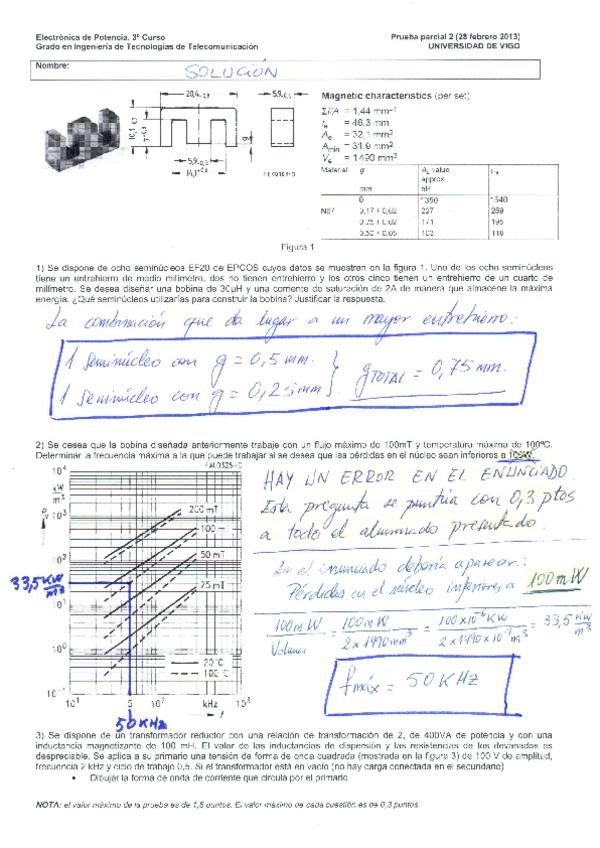 Electrónica de Potencia. 3º Curso
Prueba parcial 2 (28 febrero 2013)
Grado en Ingeniería de Tecnologías de Telecomunicación
UNIVERSIDAD DE VIGO
Nombre:
SOLUCIÓN
Magnetic characteristics (per set)
Σl/A = 1,44 mm⁻¹
lₑ = 46,3 mm
Aₑ = 32,1 mm²
Amin = 31,9 mm²
Vₑ = 1490 mm³
Material g AL value μₑ
approx.
mm nH
0 1350 1540
N87 0,17 ± 0,02 227 259
0,25 ± 0,02 171 195
0,50 ± 0,05 103 118
Figura 1
1) Se dispone de ocho seminúcleos EF20 de EPCOS cuyos datos se muestran en la figura 1. Uno de los ocho seminúcleos
tiene un entrehierro de medio milímetro, dos no tienen entrehierro y los otros cinco tienen un entrehierro de un cuarto de
milímetro. Se desea diseñar una bobina de 30μH y una corriente de saturación de 2A de manera que almacene la máxima
energía. ¿Qué seminúcleos utilizarías para construir la bobina? Justificar la respuesta.
La combinación que da lugar a un mayor entrehierro:
1 Seminúcleo con g = 0,5 mm.
1 Seminúcleo con g = 0,25 mm
gTOTAL = 0,75 mm.
2) Se desea que la bobina diseñada anteriormente trabaje con un flujo máximo de 100mT y temperatura máxima de 100ºC.
Determinar la frecuencia máxima a la que puede trabajar si se desea que las pérdidas en el núcleo sean inferiores a
10⁴
kW
m³
10³
200 mT
100
50 mT
10²
33,5 KW
m³
25 mT
10¹
10⁰
20 °C
100 °C
10⁻¹
10¹ 5 10² kHz 10³
f
50 KHz
HAY UN ERROR EN EL ENUNCIADO.
Esta pregunta se puntúa con 0,3 ptos
a todo el alumnado presentado.
En el enunciado debería aparecer:
Pérdidas en el núcleo inferiores a 100 mW
100 mW / Volumen = 100 mW / 2 x 1490 mm³ = 100 x 10⁻⁶ KW / 2 x 1490 x 10⁻⁹ m³ = 33,5 KW / m³
fmáx = 50 KHz
3) Se dispone de un transformador reductor con una relación de transformación de 2, de 400VA de potencia y con una
inductancia magnetizante de 100 mH. El valor de las inductancias de dispersión y las resistencias de los devanados es
despreciable. Se aplica a su primario una tensión de forma de onda cuadrada (mostrada en la figura 3) de 100 V de amplitud,
frecuencia 2 kHz y ciclo de trabajo 0,5. Si el transformador está en vacío (no hay carga conectada en el secundario)
• Dibujar la forma de onda de corriente que circula por el primario
NOTA: el valor máximo de la prueba es de 1,5 puntos. El valor máximo de cada cuestión es de 0,3 puntos